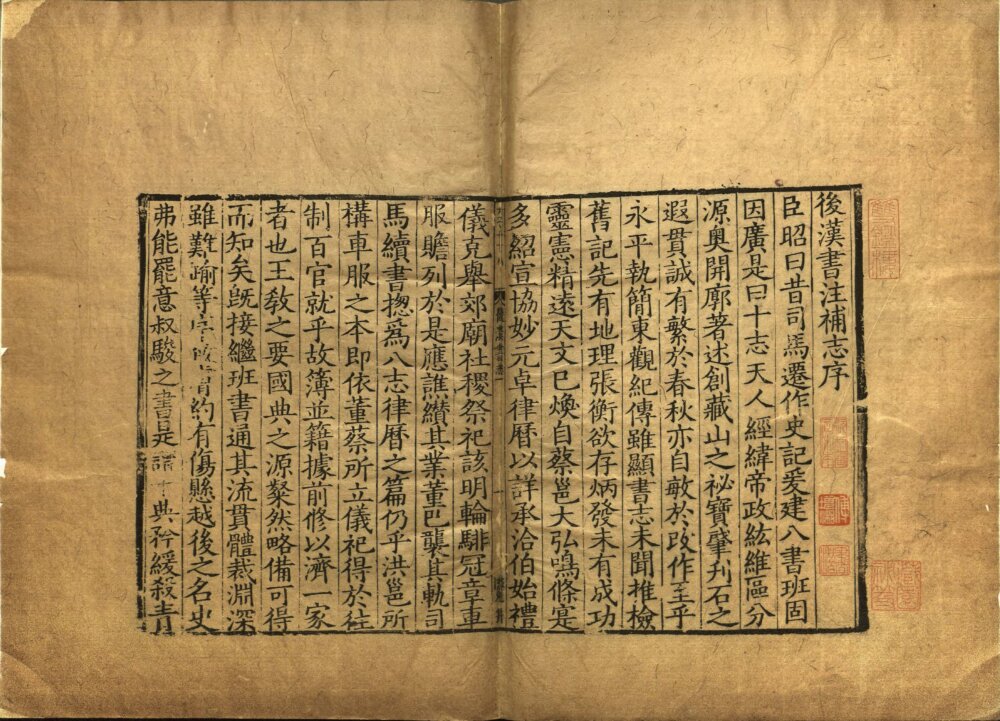 後漢書注補志序
臣昭曰昔司馬遷作史記爰建八書班固
因廣是曰十志天人經緯帝政紘維區分
源奧開廓著述創藏山之祕寶肇刊石之
遐貫誠有繁於春秋亦自敏於改作至乎
永平執簡東觀紀傳雖顯書志未聞推檢
舊記先有地理張衡欲存炳發未有成功
靈憲精遠天文已煥自蔡邕大弘鳴條寔
多紹宣協妙元卓律曆以詳承洽伯始禮
儀克舉郊廟社稷祭祀該明輪騑冠章車
服贍列於是應譙纘其業董巴襲其軌司
馬續書揔爲八志律曆之篇仍乎洪邕所
構車服之本即依董蔡所立儀祀得於往
制百官就乎故簿並籍據前修以濟一家
者也王教之要國典之源粲然略備可得
而知矣旣接繼班書通其流貫體裁淵深
雖難踰等序致膚約有傷懸越後之名史
弗能罷意叔駿之書是謂十典矜緩殺青